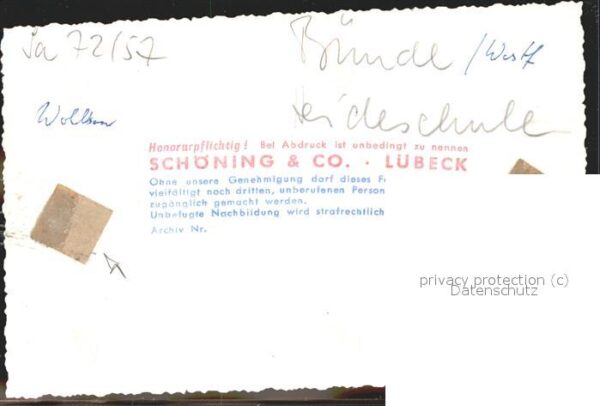 Sa 72/57
Bünde /Westf
Heideschule
Honorarpflichtig! Bei Abdruck ist unbedingt zu nennen
SCHÖNING & CO. · LÜBECK
Ohne unsere Genehmigung darf dieses F
vielfältigt noch dritten, unberufenen Person
zugänglich gemacht werden.
Unbefugte Nachbildung wird strafrechtlich
Archiv Nr.
privacy protection (c)
Datenschutz